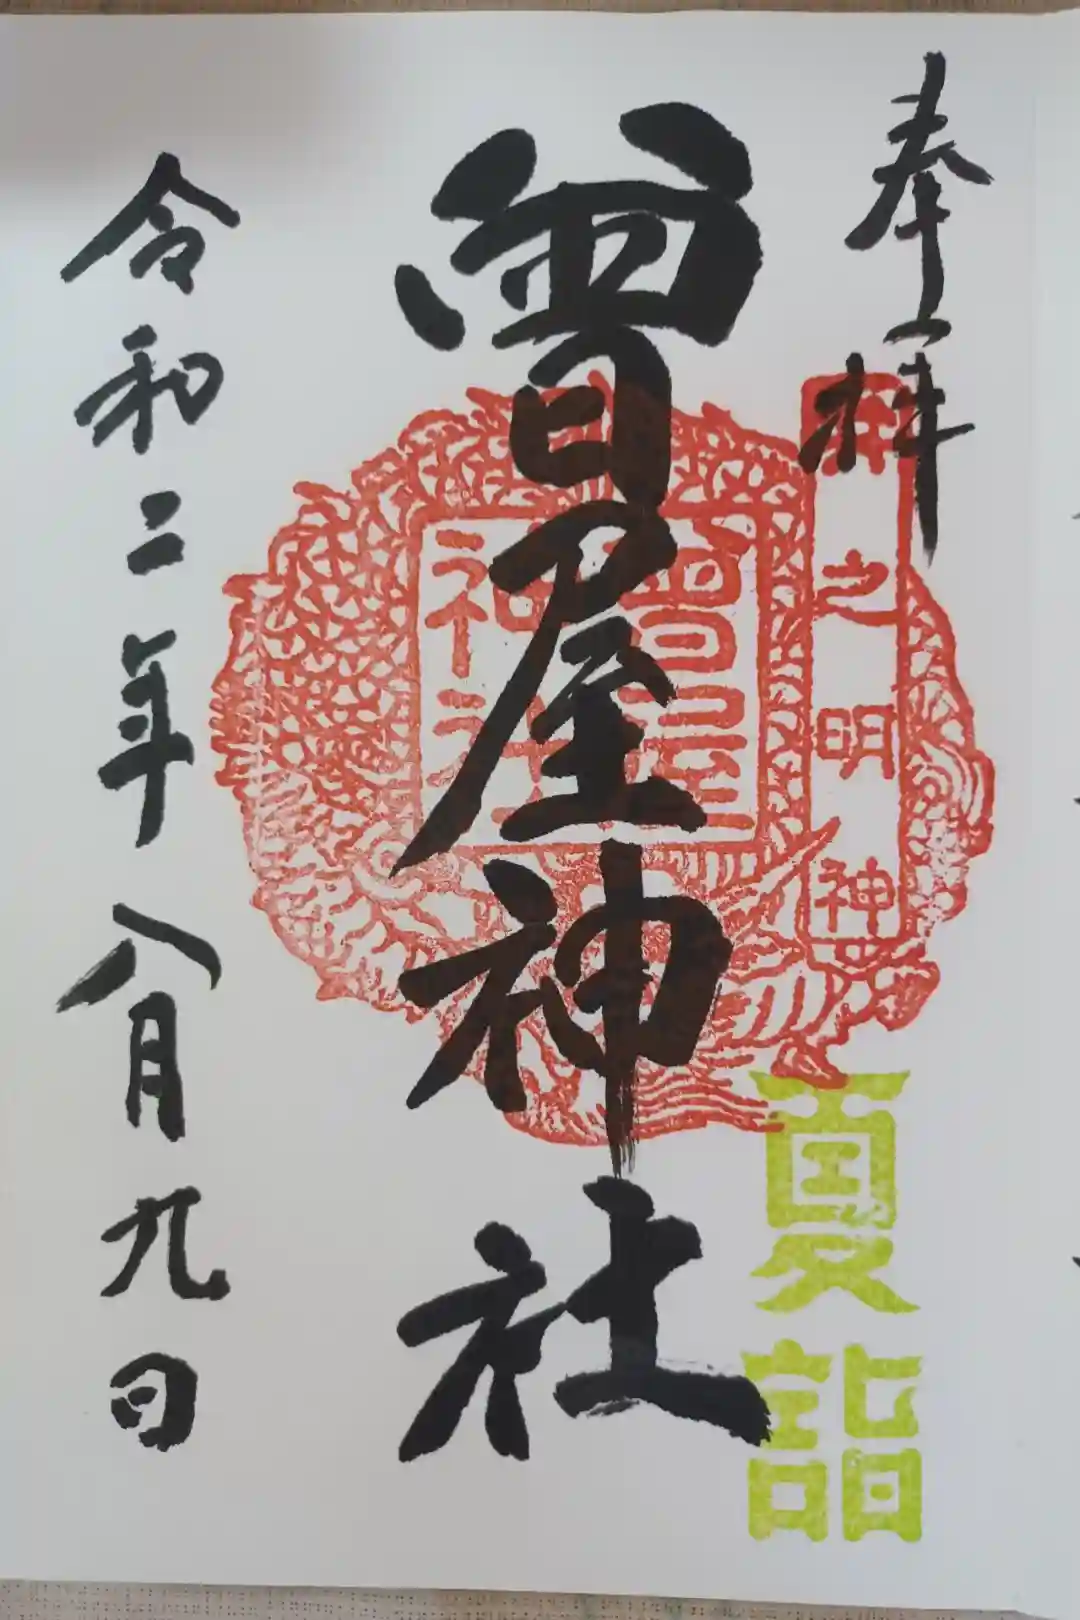 奉拝
之明神
曽屋神社
曽屋神社
夏詣
令和二年八月九日